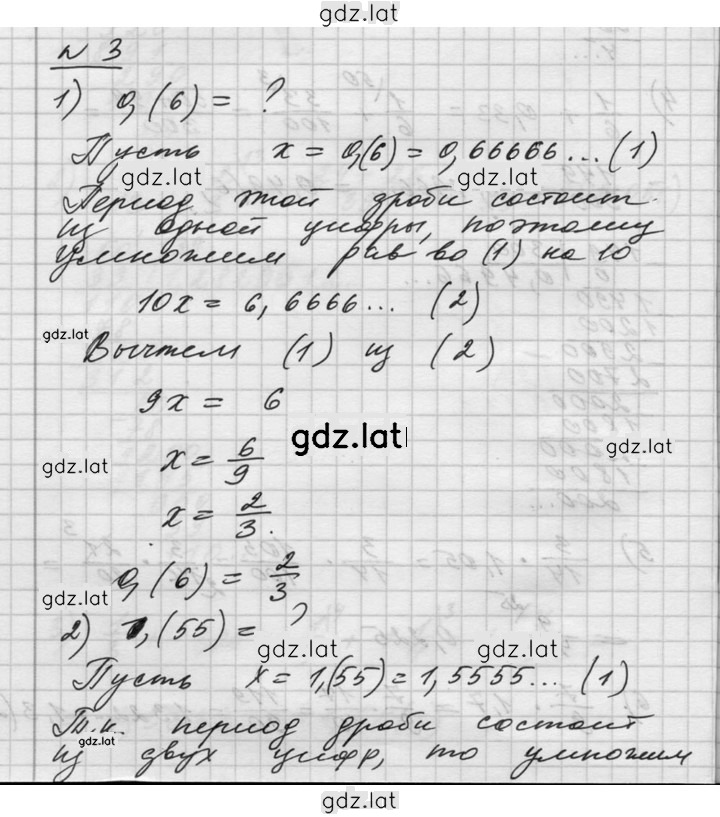 gdz.lat
№ 3
1) 0,(6) = ?
Пусть x = 0,(6) = 0,66666... (1)
gdz.lat gdz.lat
Период этой дроби состоит
из одной цифры, поэтому
умножим рав во (1) на 10
10x = 6,6666... (2)
gdz.lat
Вычтем (1) из (2)
9x = 6
gdz.lat
gdz.lat
gdz.lat
x = 6/9
x = 2/3.
0,(6) = 2/3
gdz.lat
2) 1,(55) = ?
gdz.lat gdz.lat
Пусть x = 1,(55) = 1,5555... (1)
Т.к. период дроби состоит
gdz.lat
из двух цифр, то умножим
gdz.lat